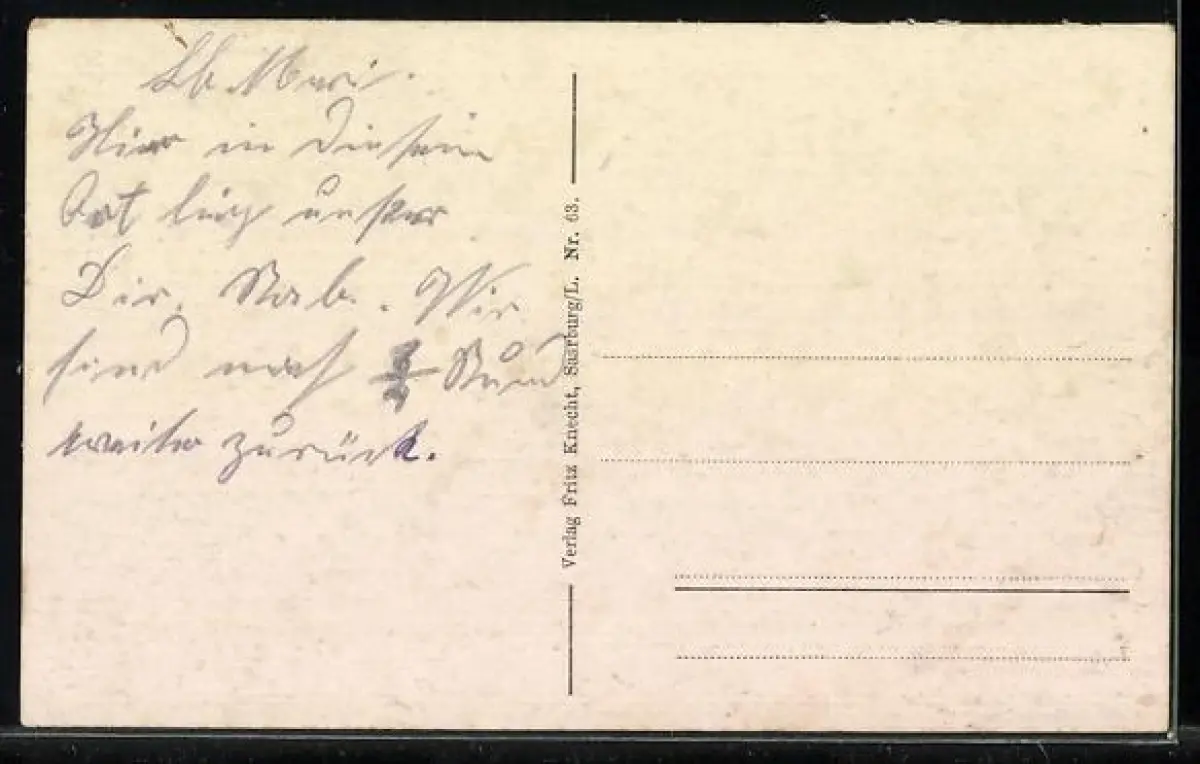 Lb. Mari.
Hier in diesem
Ort liegt unser
Div. Stab. Wir
sind noch Stund
weiter zurück.
Verlag Fritz Knecht, Saarburg/L. Nr. 63.